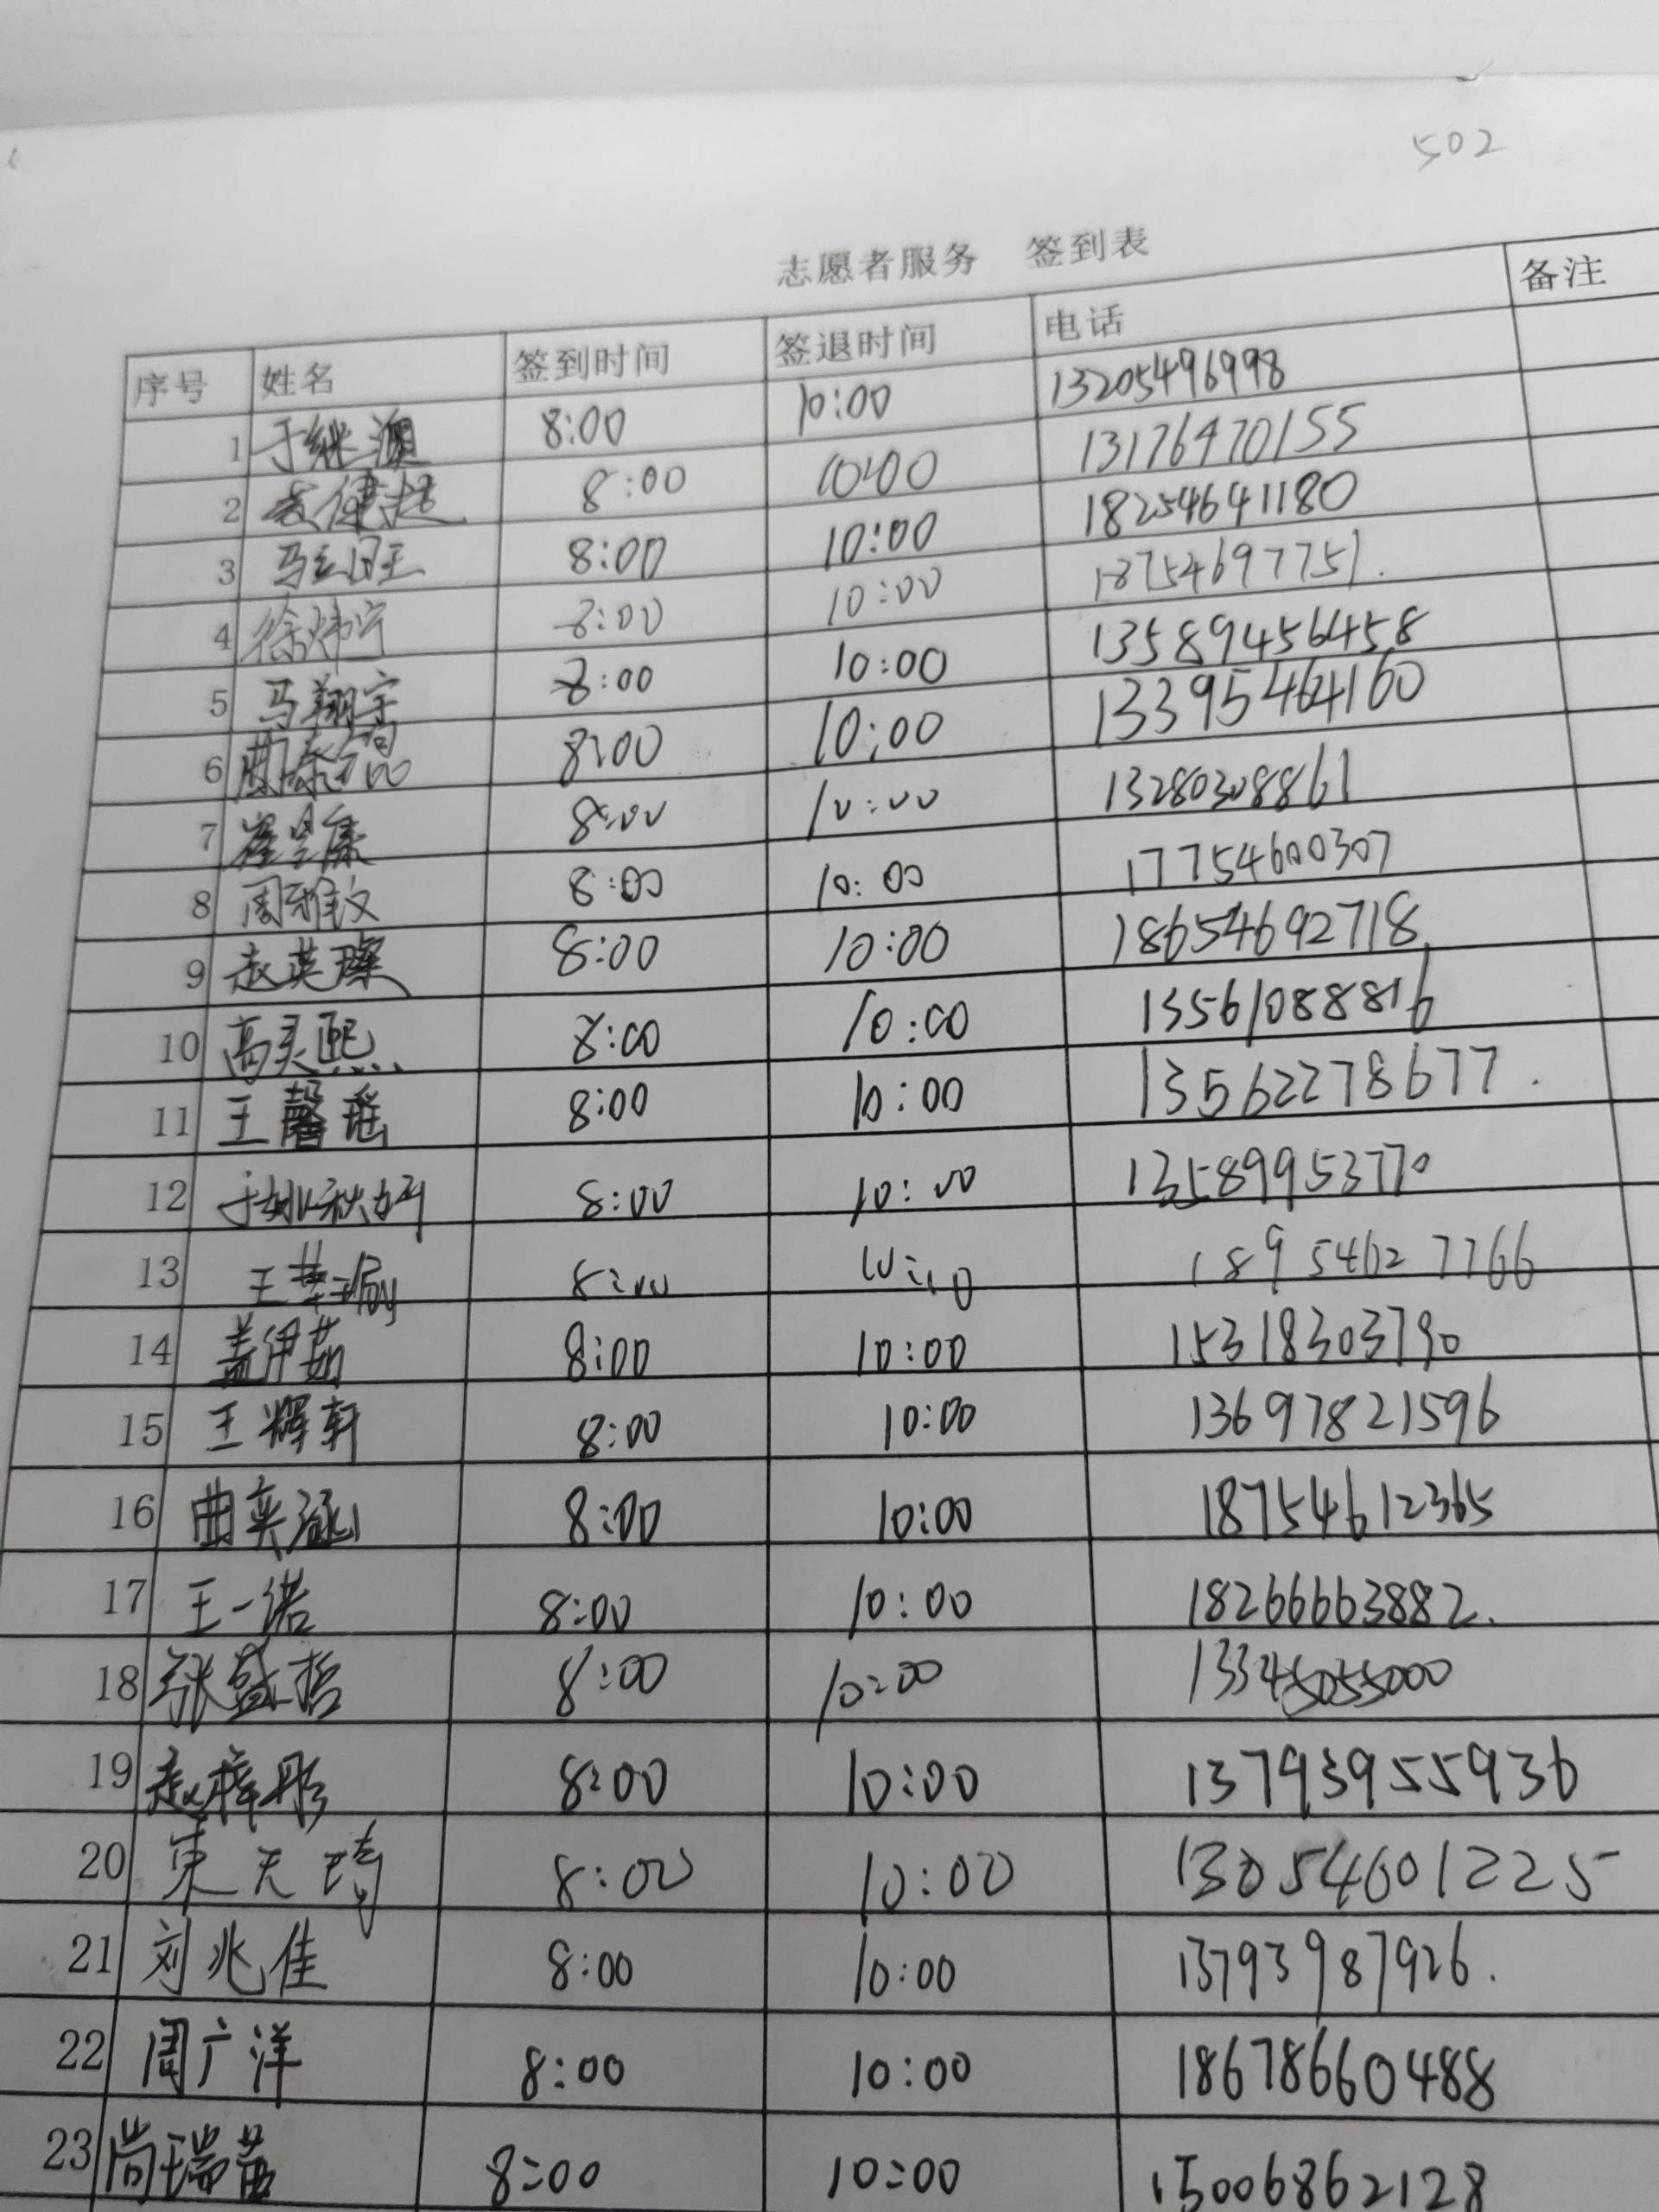 502
志愿者服务 签到表
序号 姓名 签到时间 签退时间 电话 备注
1 于继澳 8:00 10:00 13205496998
2 8:00 10:00 13176470155
3 8:00 10:00 18254641180
4 徐炜宁 8:00 10:00 18754697751.
5 马翔宇 8:00 10:00 13589456458
6 8:00 10:00 13395464160
7 8:00 10:00 13280308861
8 周雅文 8:00 10:00 17754600307
9 赵英璨 8:00 10:00 18654692718
10 高灵熙 8:00 10:00 13561088816
11 王馨瑶 8:00 10:00 13562278677.
12 于姚秋妍 8:00 10:00 13589953770
13 8:00 18954627766
14 盖伊茹 8:00 10:00 15318303790
15 王辉轩 8:00 10:00 13697821596
16 曲奕涵 8:00 10:00 18754612365
17 王一诺 8:00 10:00 18266663882.
18 张盛哲 8:00 10:00 13345055000
19 赵梓彤 8:00 10:00 13793955936
20 天琦 8:00 10:00 13054601225
21 刘兆佳 8:00 10:00 13793987926.
22 周广洋 8:00 10:00 18678660488
23 尚瑞 8:00 10:00 15006862128